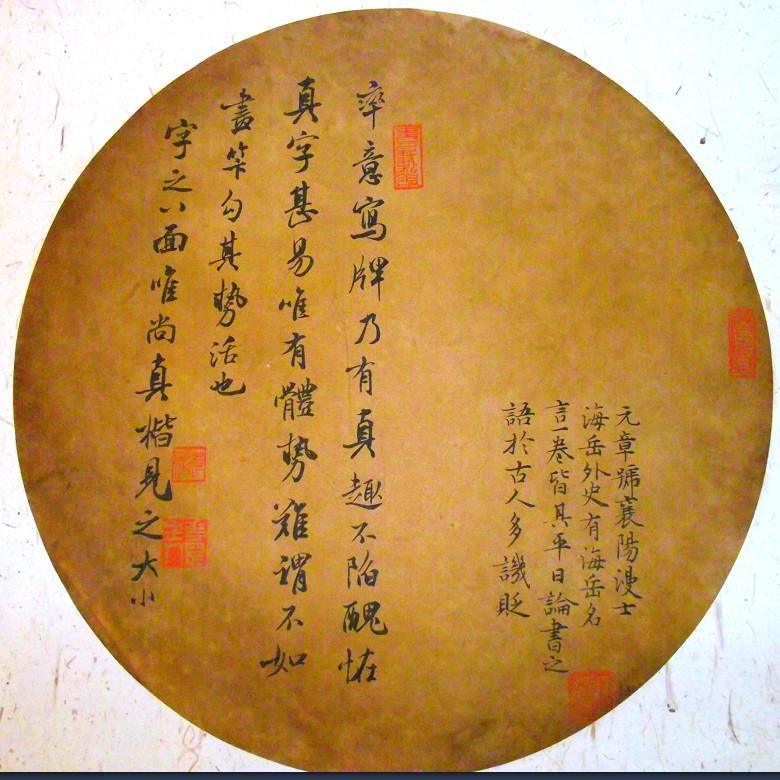 元章號襄陽漫士
海岳外史有海岳名
言一卷皆其平日論書之
語於古人多譏貶
率意寫牌乃有真趣不陷醜恠
真字甚易唯有體勢難謂不如
畫筭勻其勢活也
字之八面唯尚真楷見之大小